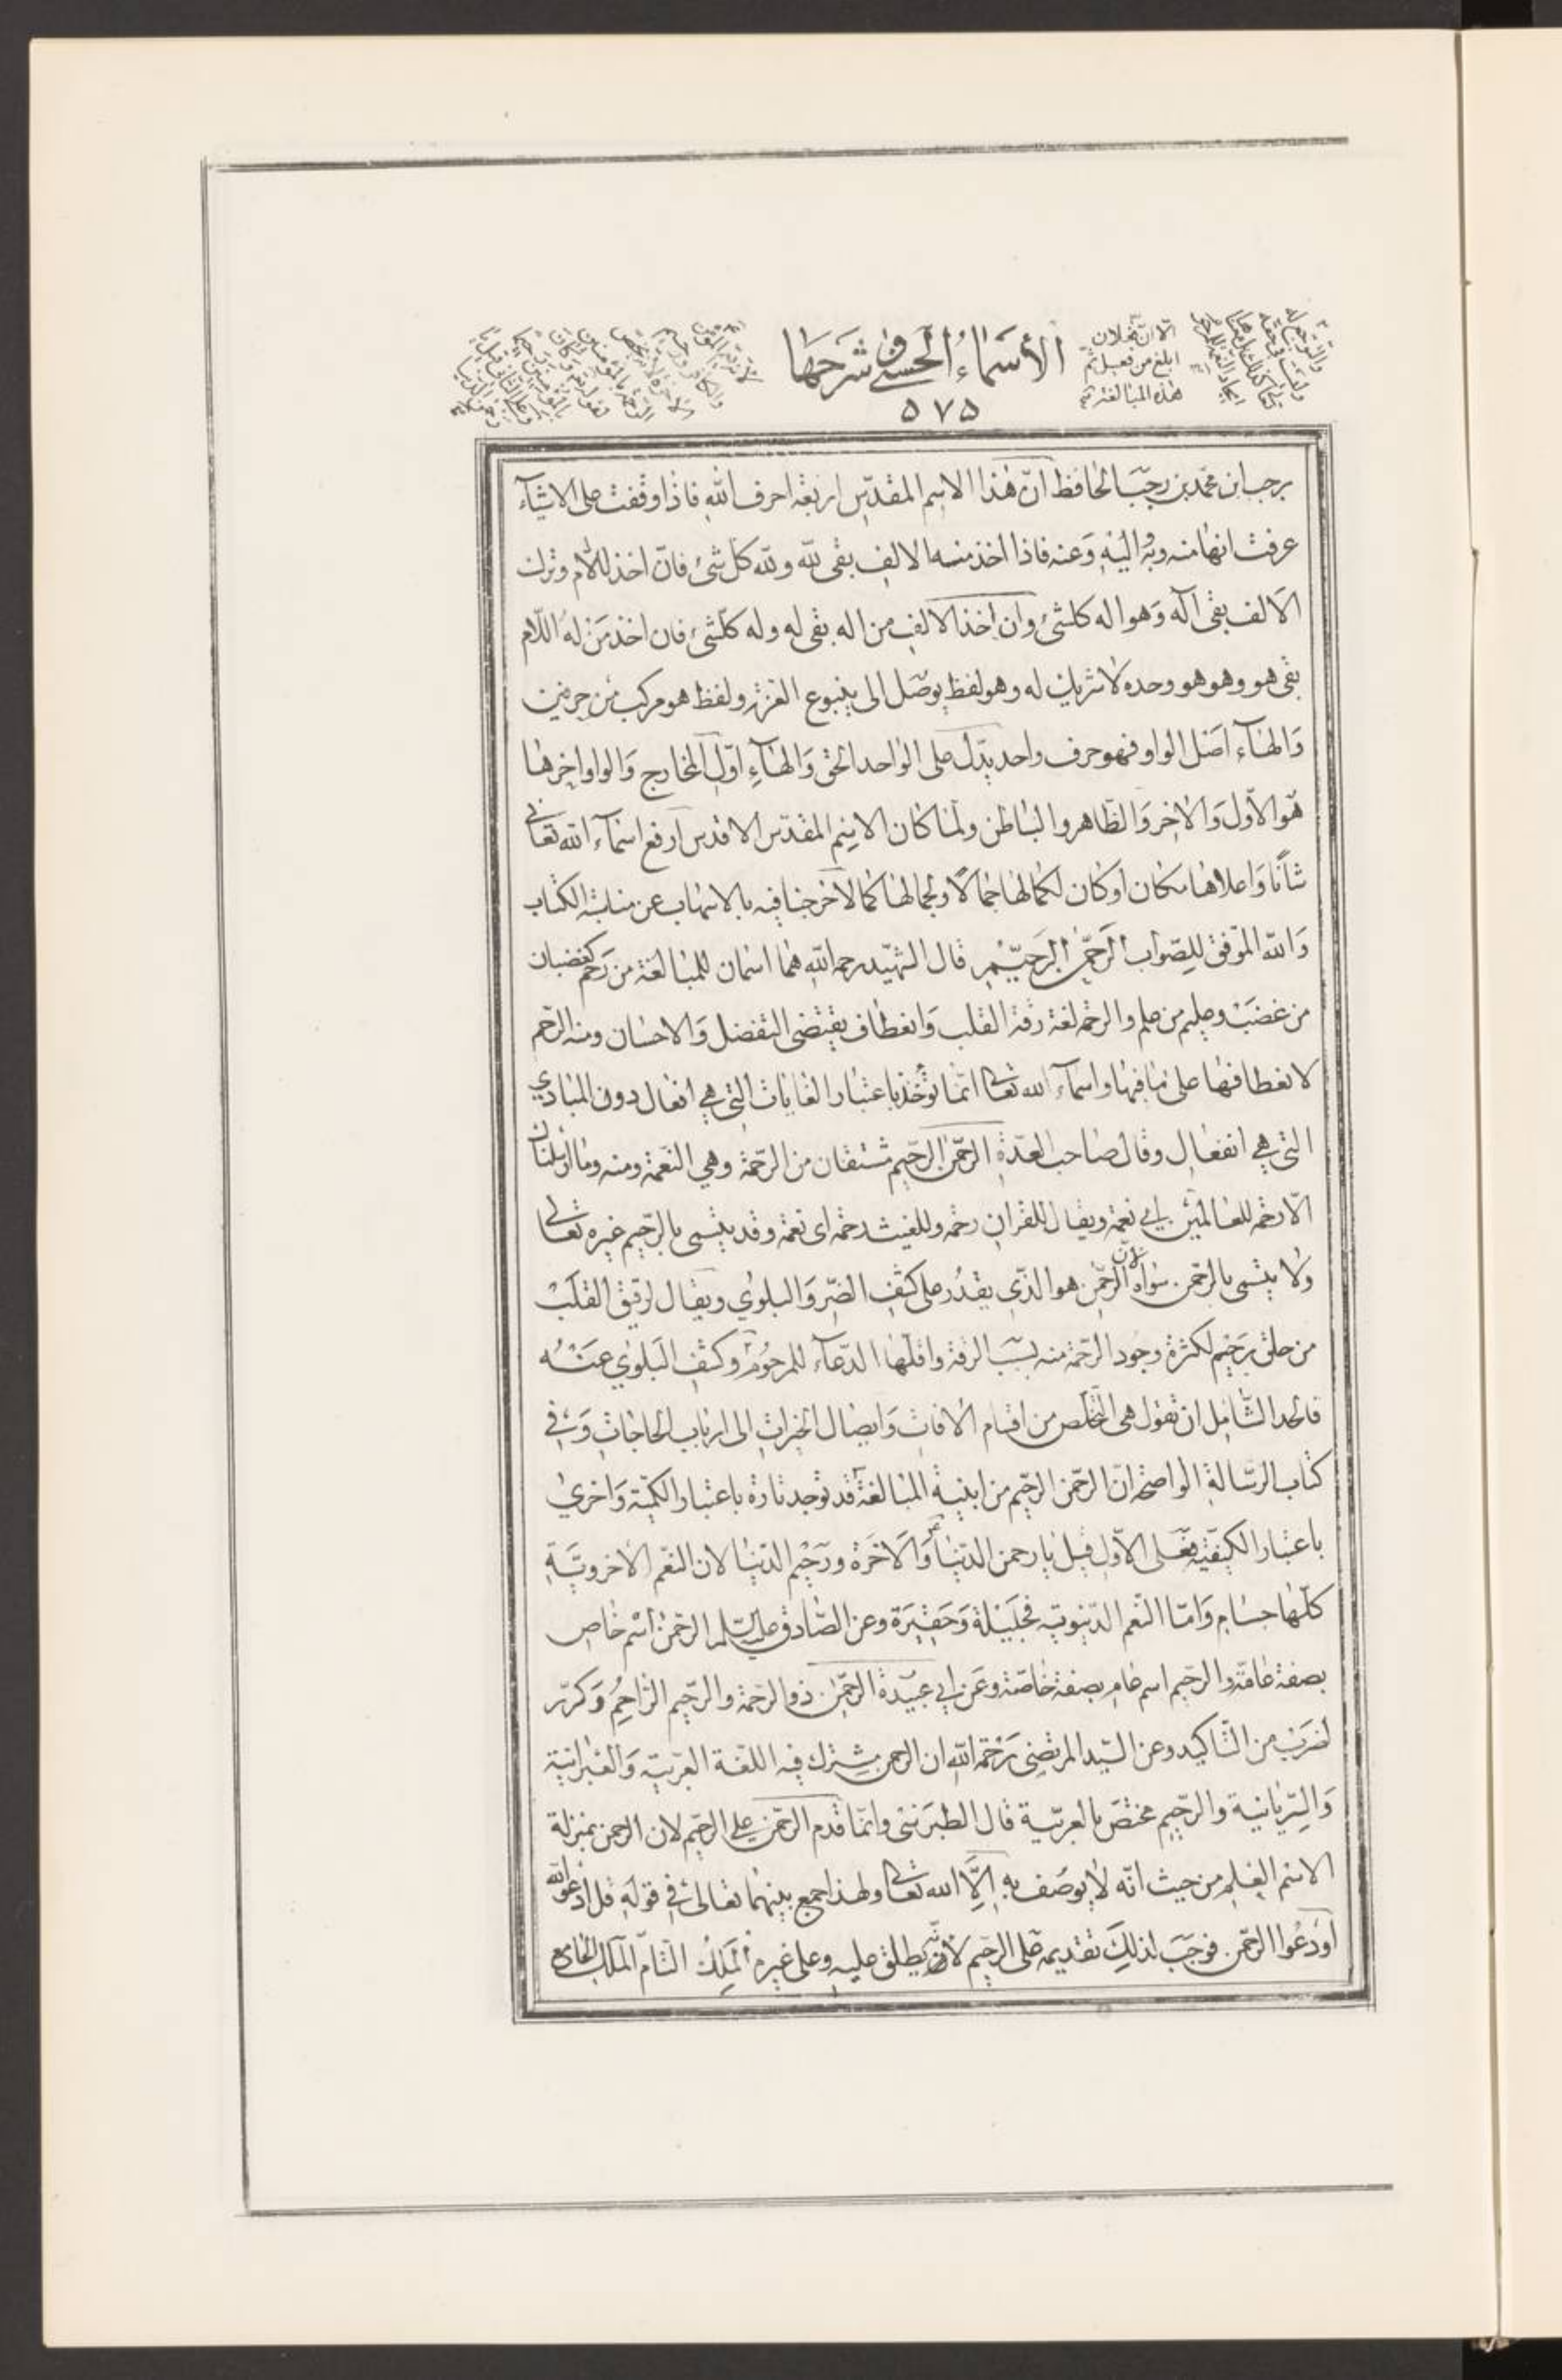 الأسماء الحسنى و شرحها
٥٧٥
الا ان فعلان
ابلغ من فعيل ثم
هذه المبالغة
برجب بن محمد بن رجب الحافظ انّ هذا الاسم المقدّس اربعة احرف الله فاذا وقفت على الاشيآء
عرفت انها منه وبه واليه وعنه فاذا اخذ منه الالف بقى لله ولله كل شئ فان اخذ اللام وترك
الالف بقى اله وهو اله كلشئ وان اخذ الالف من اله بقى له وله كلّشئ فان اخذ من له اللّام
بقى هو وهو هو وحده لا شريك له وهو لفظ يوصل الى ينبوع العزة ولفظ هو مركب من حرفين
والهآء اصل الواو فهو حرف واحد يدّل على الواحد الحق والهآء اوّل المخارج والواو اخرها
هو الاوّل والاخر والظّاهر والباطن ولما كان الاسم المقدّس الاقدس ارفع اسمآء الله تعالى
شأنا واعلاها مكانا وكان لكمالها جمالا ولجمالها كمالا خرجنا فيه بالاسهاب عن مناسبة الكتاب
والله الموفق للصّواب الرحمن الرحيم قال الشهيد رحمه الله هما اسمان للمبالغة من رحم كغضبان
من غضب وعليم من علم والرحمة لغة رقة القلب وانعطاف يقتضى التفضل والاحسان ومنه الرحم
لانعطافها على ما فيها واسمآء الله تعالى انّما تؤخذ باعتبار الغايات التي هي افعال دون المبادي
التي هي انفعال وقال صاحب العدّة الرحمن الرحيم مشتقان من الرّحمة وهي النعمة ومنه وما ارسلناك
الّا رحمة للعالمين اي نعمة ويقال للقران رحمة وللغيث رحمة اى نعمة وقد يتسمى بالرّحيم غيره تعالى
ولا يتسمى بالرحمن سواه لانّ الرحمن هو الذّى يقدر على كشف الضّر والبلوي ويقال لرقيق القلب
من خلق رحيم لكثرة وجود الرّحمة منه بسبب الرقة واقلّها الدّعآء للمرحوم وكشف البلوى عنه
فالحد الشّامل ان تقول هى التخلص من اقسام الافات وايصال الخيرات الى ارباب الحاجات وفي
كتاب الرسالة الواضحة ان الرحمن الرحيم من ابنية المبالغة قد توجد تارة باعتبار الكميّة واخرى
باعتبار الكيفيّة فعلى الاوّل قيل يا رحمن الدنيا والاخرة ورحيم الدّنيا لان النعم الاخرويّة
كلّها جسام وامّا النعم الدنيوية فجليلة وحقيرة وعن الصّادق عليه السّلم الرحمن اسم خاص
بصفة عامّة والرحيم اسم عام بصفة خاصّة وعن ابي عبيدة الرحمن ذو الرحمة والرحيم الراحم وكرّر
لضرب من التّاكيد وعن السّيد المرتضى رحمه الله ان الرحمن مشترك فيه اللغة العربيّة والعبرانية
والسريانية والرّحيم مختص بالعربيّة قال الطبرسى وانّما قدم الرحمن على الرحيم لان الرحمن بمنزلة
الاسم العلم من حيث انّه لا يوصف به الّا الله تعالى ولهذا جمع بينهما تعالى في قوله قل ادعوا الله
او ادعوا الرحمن فوجب لذلك تقديمه على الرحيم لانّه يطلق عليه وعلى غيره الملك التّام الملك الجامع